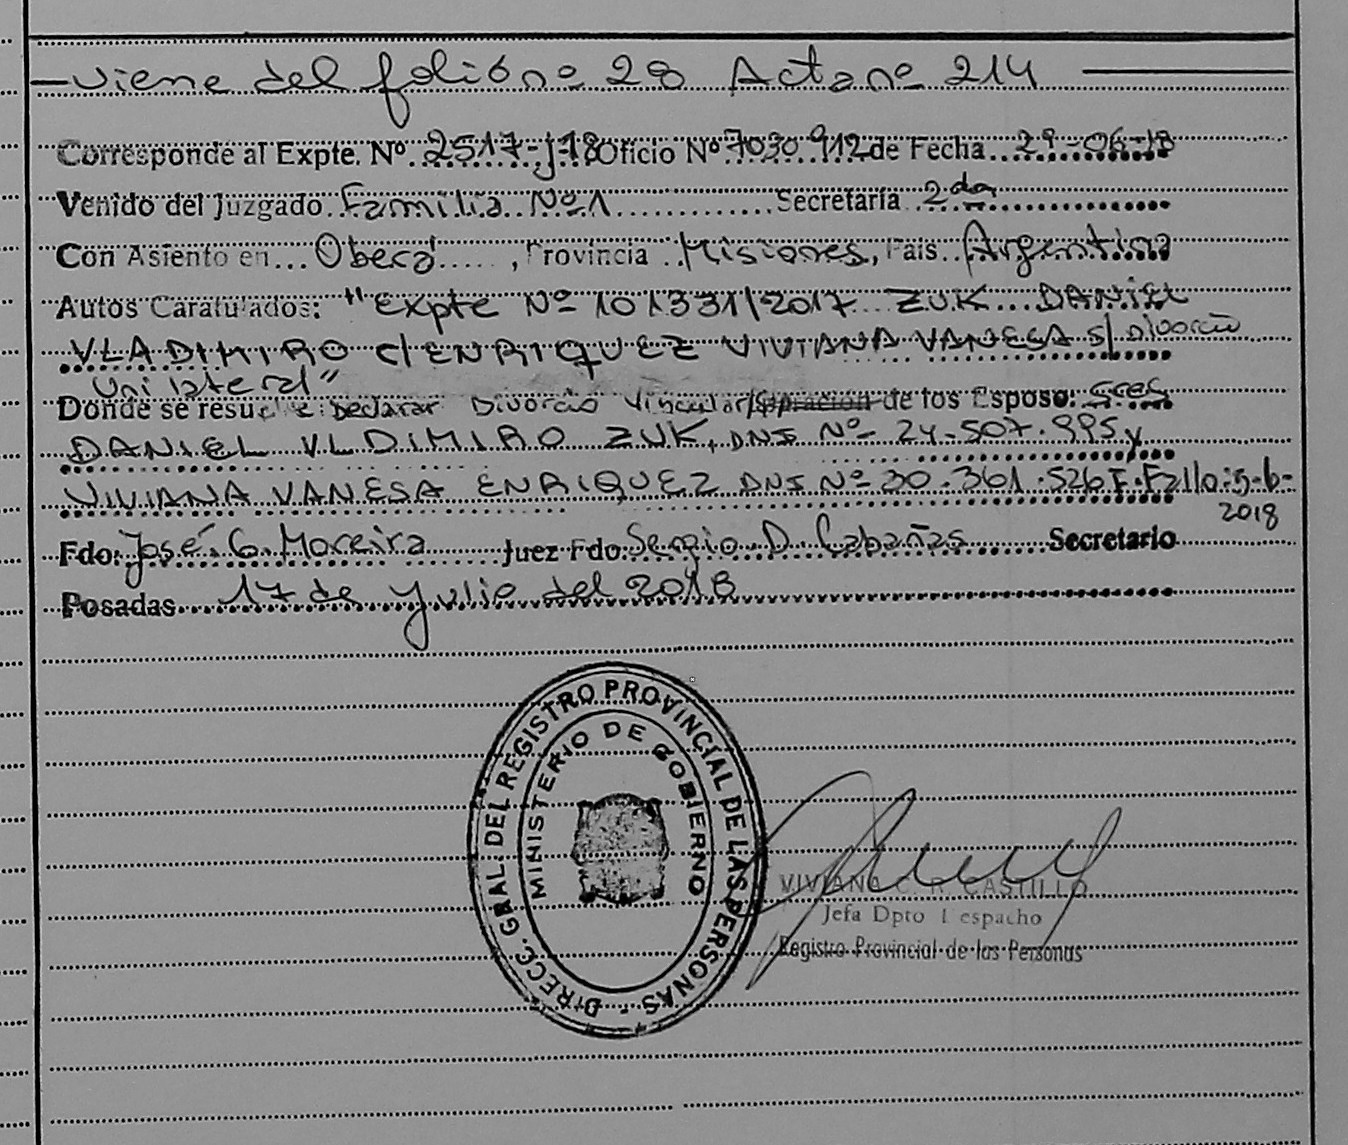 Viene del folio nº 28 Acta nº 214
Corresponde al Expte. Nº 2517-J-18 Oficio Nº 7030912 de Fecha 29-06-18
Venido del Juzgado Familia Nº 1 Secretaría 2da
Con Asiento en Oberá, Provincia Misiones, País Argentina
Autos Caratulados: "Expte Nº 101331/2017 ZUK DANIEL
VLADIMIRO C/ ENRIQUEZ VIVIANA VANESA S/ Divorcio
Unilateral"
Donde se resuelve Declarar Divorcio Vincular/Separación de los Esposo: Sres
DANIEL VLDIMIRO ZUK, DNI Nº 24.507.995 y
VIVIANA VANESA ENRIQUEZ DNI Nº 30.361.526 F. Fallo: 5-6-
2018
Fdo: José G. Moreira Juez Fdo: Sergio D. Cabañas Secretario
Posadas 17 de Julio del 2018
DIRECC. GRAL. DEL REGISTRO PROVINCIAL DE LAS PERSONAS
MINISTERIO DE GOBIERNO
VIVIANA C. R. CASTILLO
Jefa Dpto Despacho
Registro Provincial de las Personas